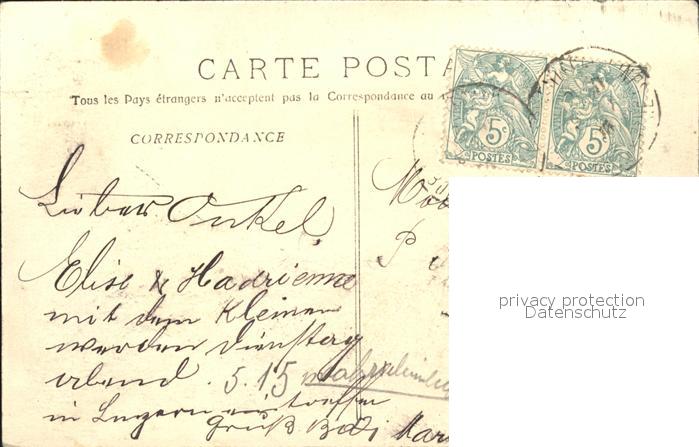 CARTE POSTA
Tous les Pays étrangers n'acceptent pas la Correspondance au
CORRESPONDANCE
5c
POSTES
5c
POSTES
Lieber Onkel,
Elise & Hadrienne
mit dem Kleinen
werden Dienstag
abend 5.15 wahrscheinlich
in Luzern eintreffen
Gruß
privacy protection
Datenschutz